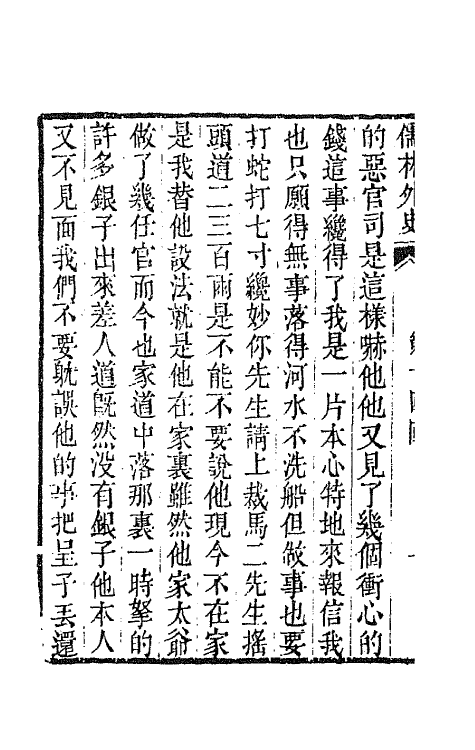 儒林外史　第十四回　一
的惡官司是這樣嚇他他又見了幾個衝心的
錢這事纔得了我是一片本心特地來報信我
也只願得無事落得河水不洗船但做事也要
打蛇打七寸纔妙你先生請上裁馬二先生搖
頭道二三百兩是不能不要說他現今不在家
是我替他設法就是他在家裏雖然他家太爺
做了幾任官而今也家道中落那裏一時拏的
許多銀子出來差人道旣然没有銀子他本人
又不見面我們不要躭誤他的事把呈子丟還